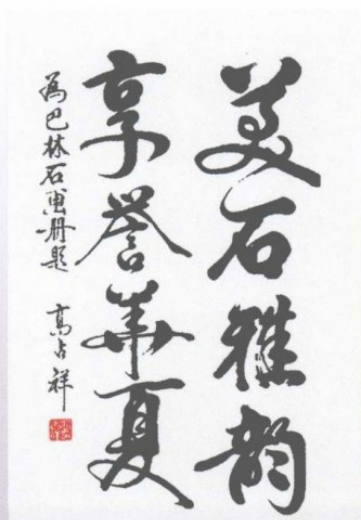 美石雅韵
享誉华夏
为巴林石画册题
高占祥